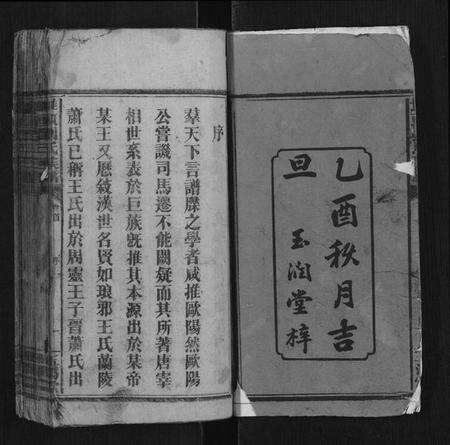 乙酉秋月吉
旦
玉潤堂梓
序
羣天下言譜牒之學者咸推歐陽然歐陽
公嘗譏司馬遷不能闕疑而其所著唐宰
相世系表於巨族旣推其本源出於某帝
某王又歷敍漢世名賢如琅邪王氏蘭陵
蕭氏已稱王氏出於周靈王子晉蕭氏出